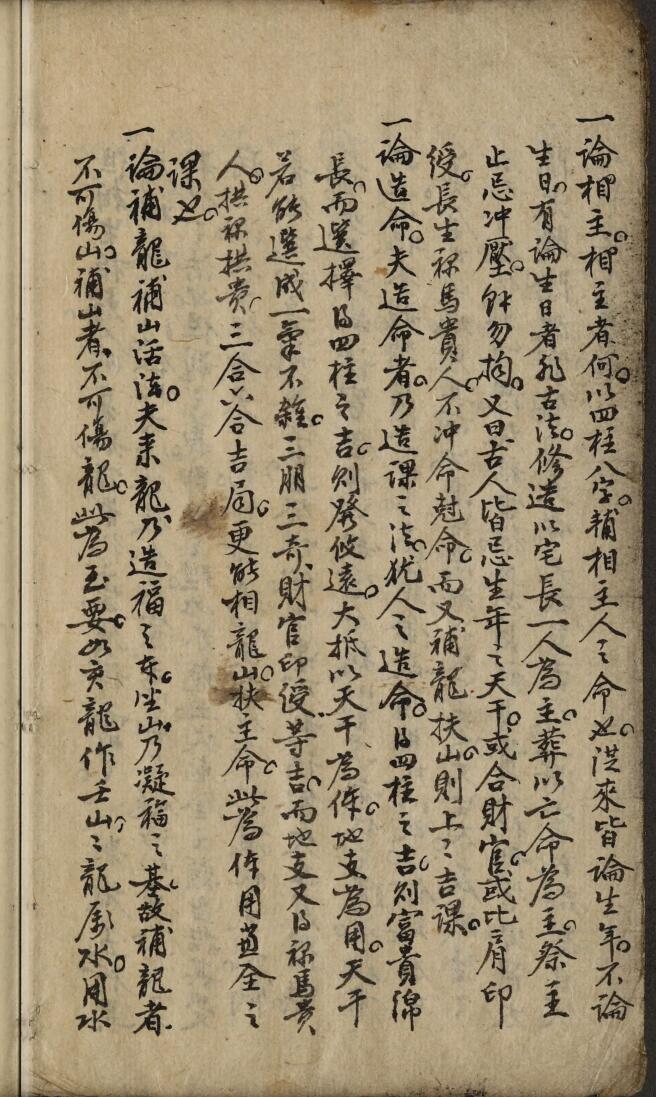 一論相主。相主者何。以四柱八字。輔相主人之命也。従來皆論生年。不論
生日。有論生日者非古法。修造以宅長一人為主。葬以亡命為主。祭主
止忌冲壓。餘勿拘。又曰古人皆忌生年之天干。或合財官。或比肩印
綬。長生祿馬貴人。不冲命尅命。而又補龍扶山。則上〻吉課。
一論造命。夫造命者。乃造課之法。犹人之造命。得四柱之吉。則富貴綿
長。而選擇得四柱之吉。則發攸遠。大抵以天干為体。地支為用。天干
若能選成一氣不雜。三朋三奇、財官印綬等吉。而地支又得祿馬貴
人。拱祿拱貴。三合六合吉局。更能相龍山。扶主命。此為体用兼全之
課也。
一論補龍補山活法。夫来龍乃造福之本。坐山乃凝福之基。故補龍者
不可傷山。補山者不可傷龍。此為至要。如亥龍作壬山。〻龍屬水。用水